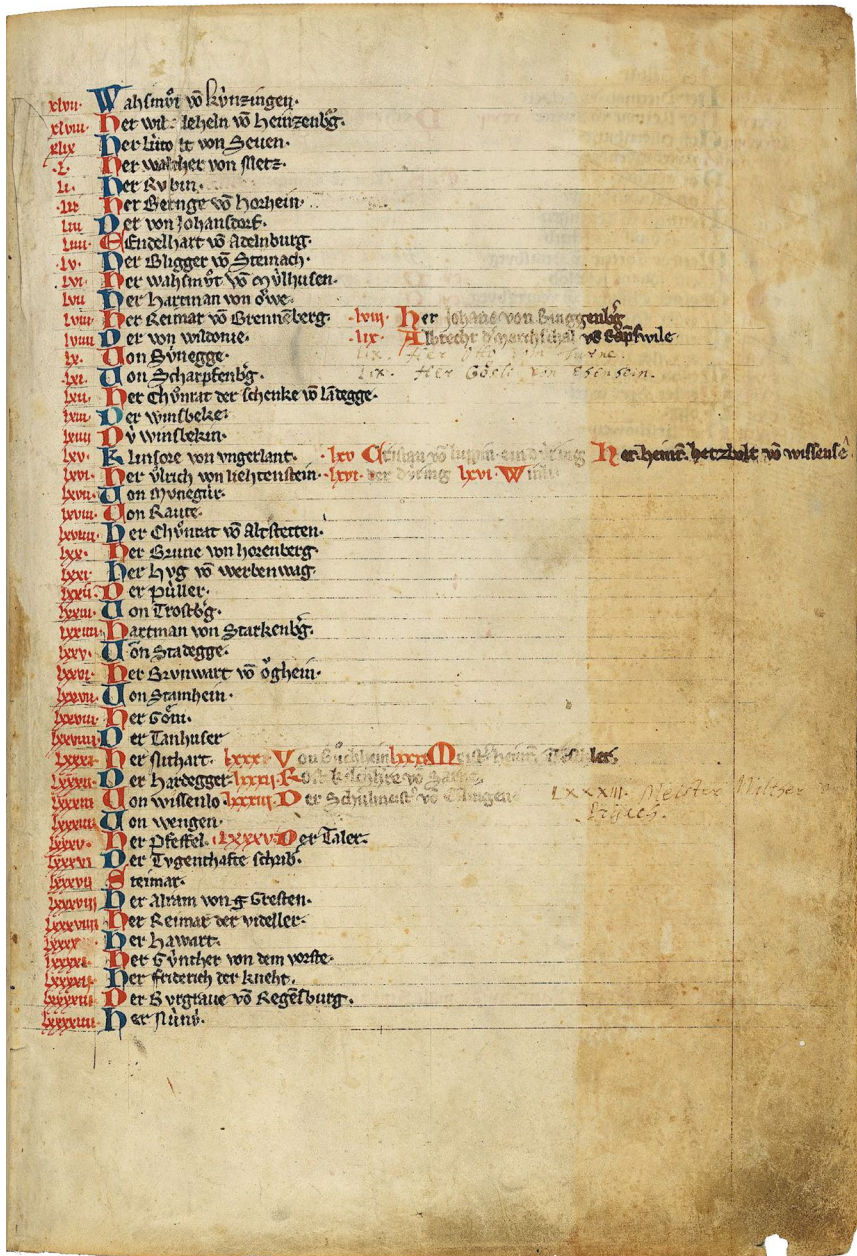 xlvii· Wahsmůt vō kv̍nzingen·
xlviii· Her wil leheln vō heinzenb͛g·
xlix Her lv̍to lt von Seuen·
·l· Her walther von Metz·
li· Her Rvbin·
·lii· Her Bernge vō horhein·
liii Der von Johansdorf·
liiii· Endelhart vō Adelnburg·
·lv· Her Bligger vō Steinach·
lvi· Her wahsmůt vō mv̍lhusen·
lvii Her Hartman von ǒwe·
lviii Her Reimar vō Brennēberg· ·lviii· Her Johans von Ringgenb͛g
lviiii Der von wildonie· ·lix· Albrecht marchschal vō Rap͛swile
lx· Von Sv̍negge· lix. Her Otto vom Turne.
lxi· Von Scharpfenb͛g· lix. Her Gösli von Ehenhein.
lxii· Her Chůnrat der schenke vō lādegge·
lxiii Der winsbeke·
lxiiii Dv̍ winsbekin·
lxv· Klinsore von vngerlant· ·lxv Cristan vō ein dv̍ring Her heinr̄ hetzbolt vō wissense
lxvi· Her v̊lrich von liehtenstein· ·lxvi· der dv̍ring lxvi· Winli
lxvii· Von Mvnegůr·
lxviii· Von Raute·
lxviiii· Her Chůnrat vō Altstetten·
lxx· Her Brune von horenberg·
lxxi· Her Hvg vō werbenwag
lxxii· Der pv̍ller·
lxxiii· Von Trostb͛g·
lxxiiii· Hartman von Starkenb͛g·
lxxv· Von Stadegge·
lxxvi· Her Brvnwart vō ǒghein·
lxxvii Von Stamhein·
lxxviii Her Gǒli·
lxxviiii Der Tanhuser
lxxx· Her Nithart· lxxx· Von Bůchhein lxxx Meist͛ heinr̄ Teschler
lxxxi· Der Hardegger· lxxxii· Rost kilchh͛re vō Sarne
lxxxii Von wissenlo lxxxiii· Der Schůlmeist͛ vō Esslingen LXXXIII. Meister Walther von
lxxxiii Von wengen· Prisach.
lxxxv· Her Pfeffel· ·lxxxv· Der Taler·
lxxxvi Der Tvgenthafte schrib͛·
lxxxvii Steimar·
lxxxviii Her Alram von g Gresten·
lxxxviiii Her Reimar der videller·
lxxxx· Her Hawart·
lxxxxi Her Gv̍nther von dem vorste·
lxxxxii· Her friderich der kneht·
lxxxxiii Der Bvrgraue vō Regēsburg·
lxxxxiiii Her Nv̍nv̍·